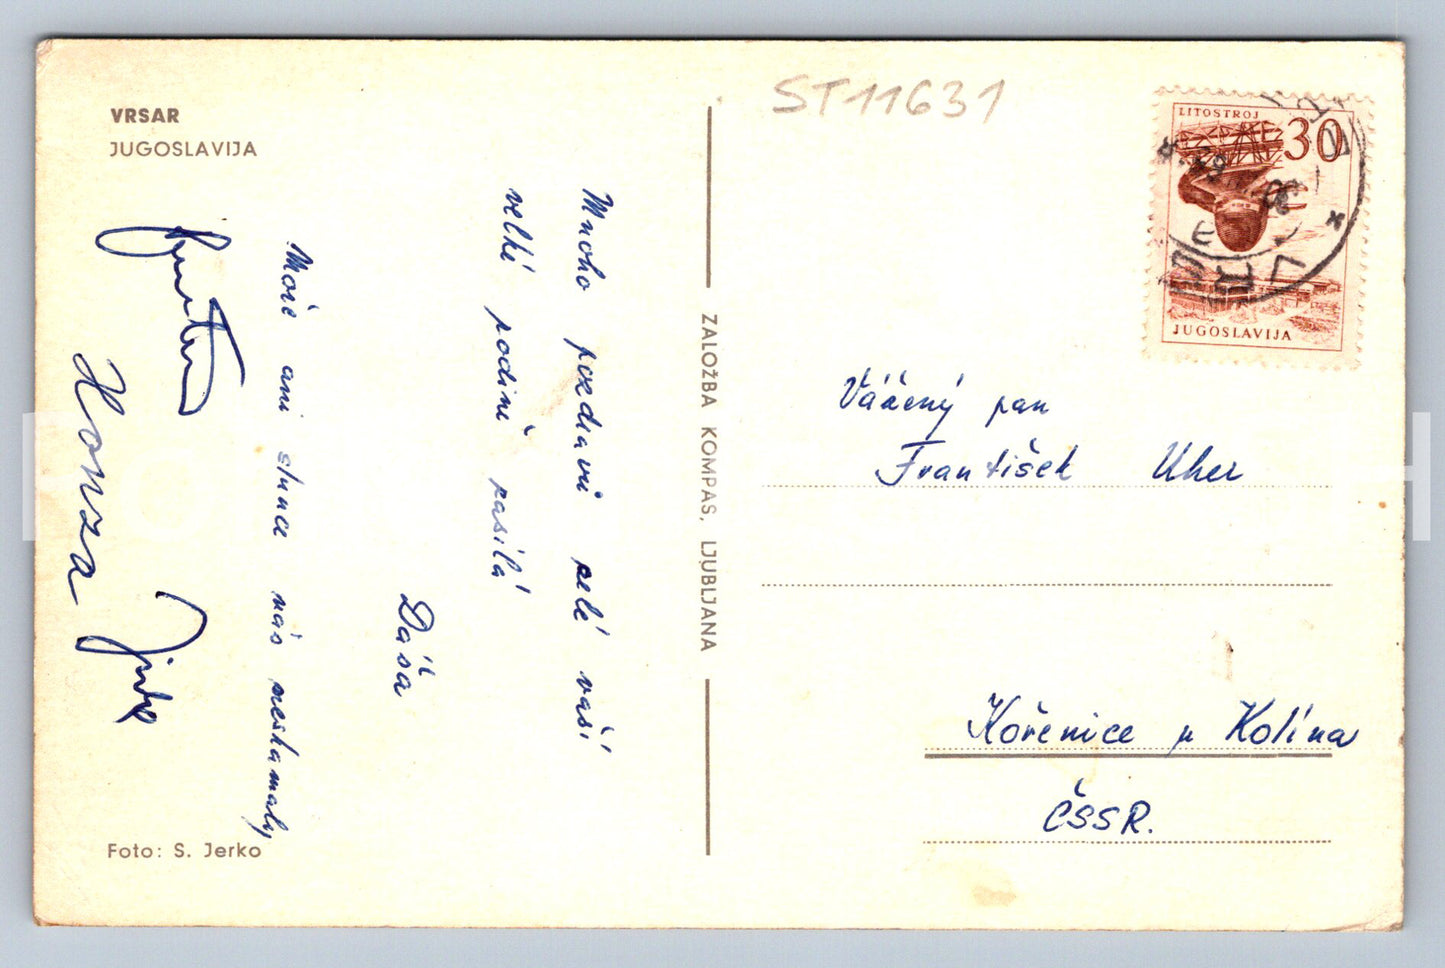 VRSAR
JUGOSLAVIJA
ST11631
LITOSTROJ
30
JUGOSLAVIJA
Mnoho pozdravů celé vaší
velké rodině zasílá
Dáša
Moře ani slunce nás nesklamaly
Honza
ZALOŽBA KOMPAS, LJUBLJANA
Vážený pan
František Uher
Kořenice u Kolína
ČSSR.
Foto: S. Jerko